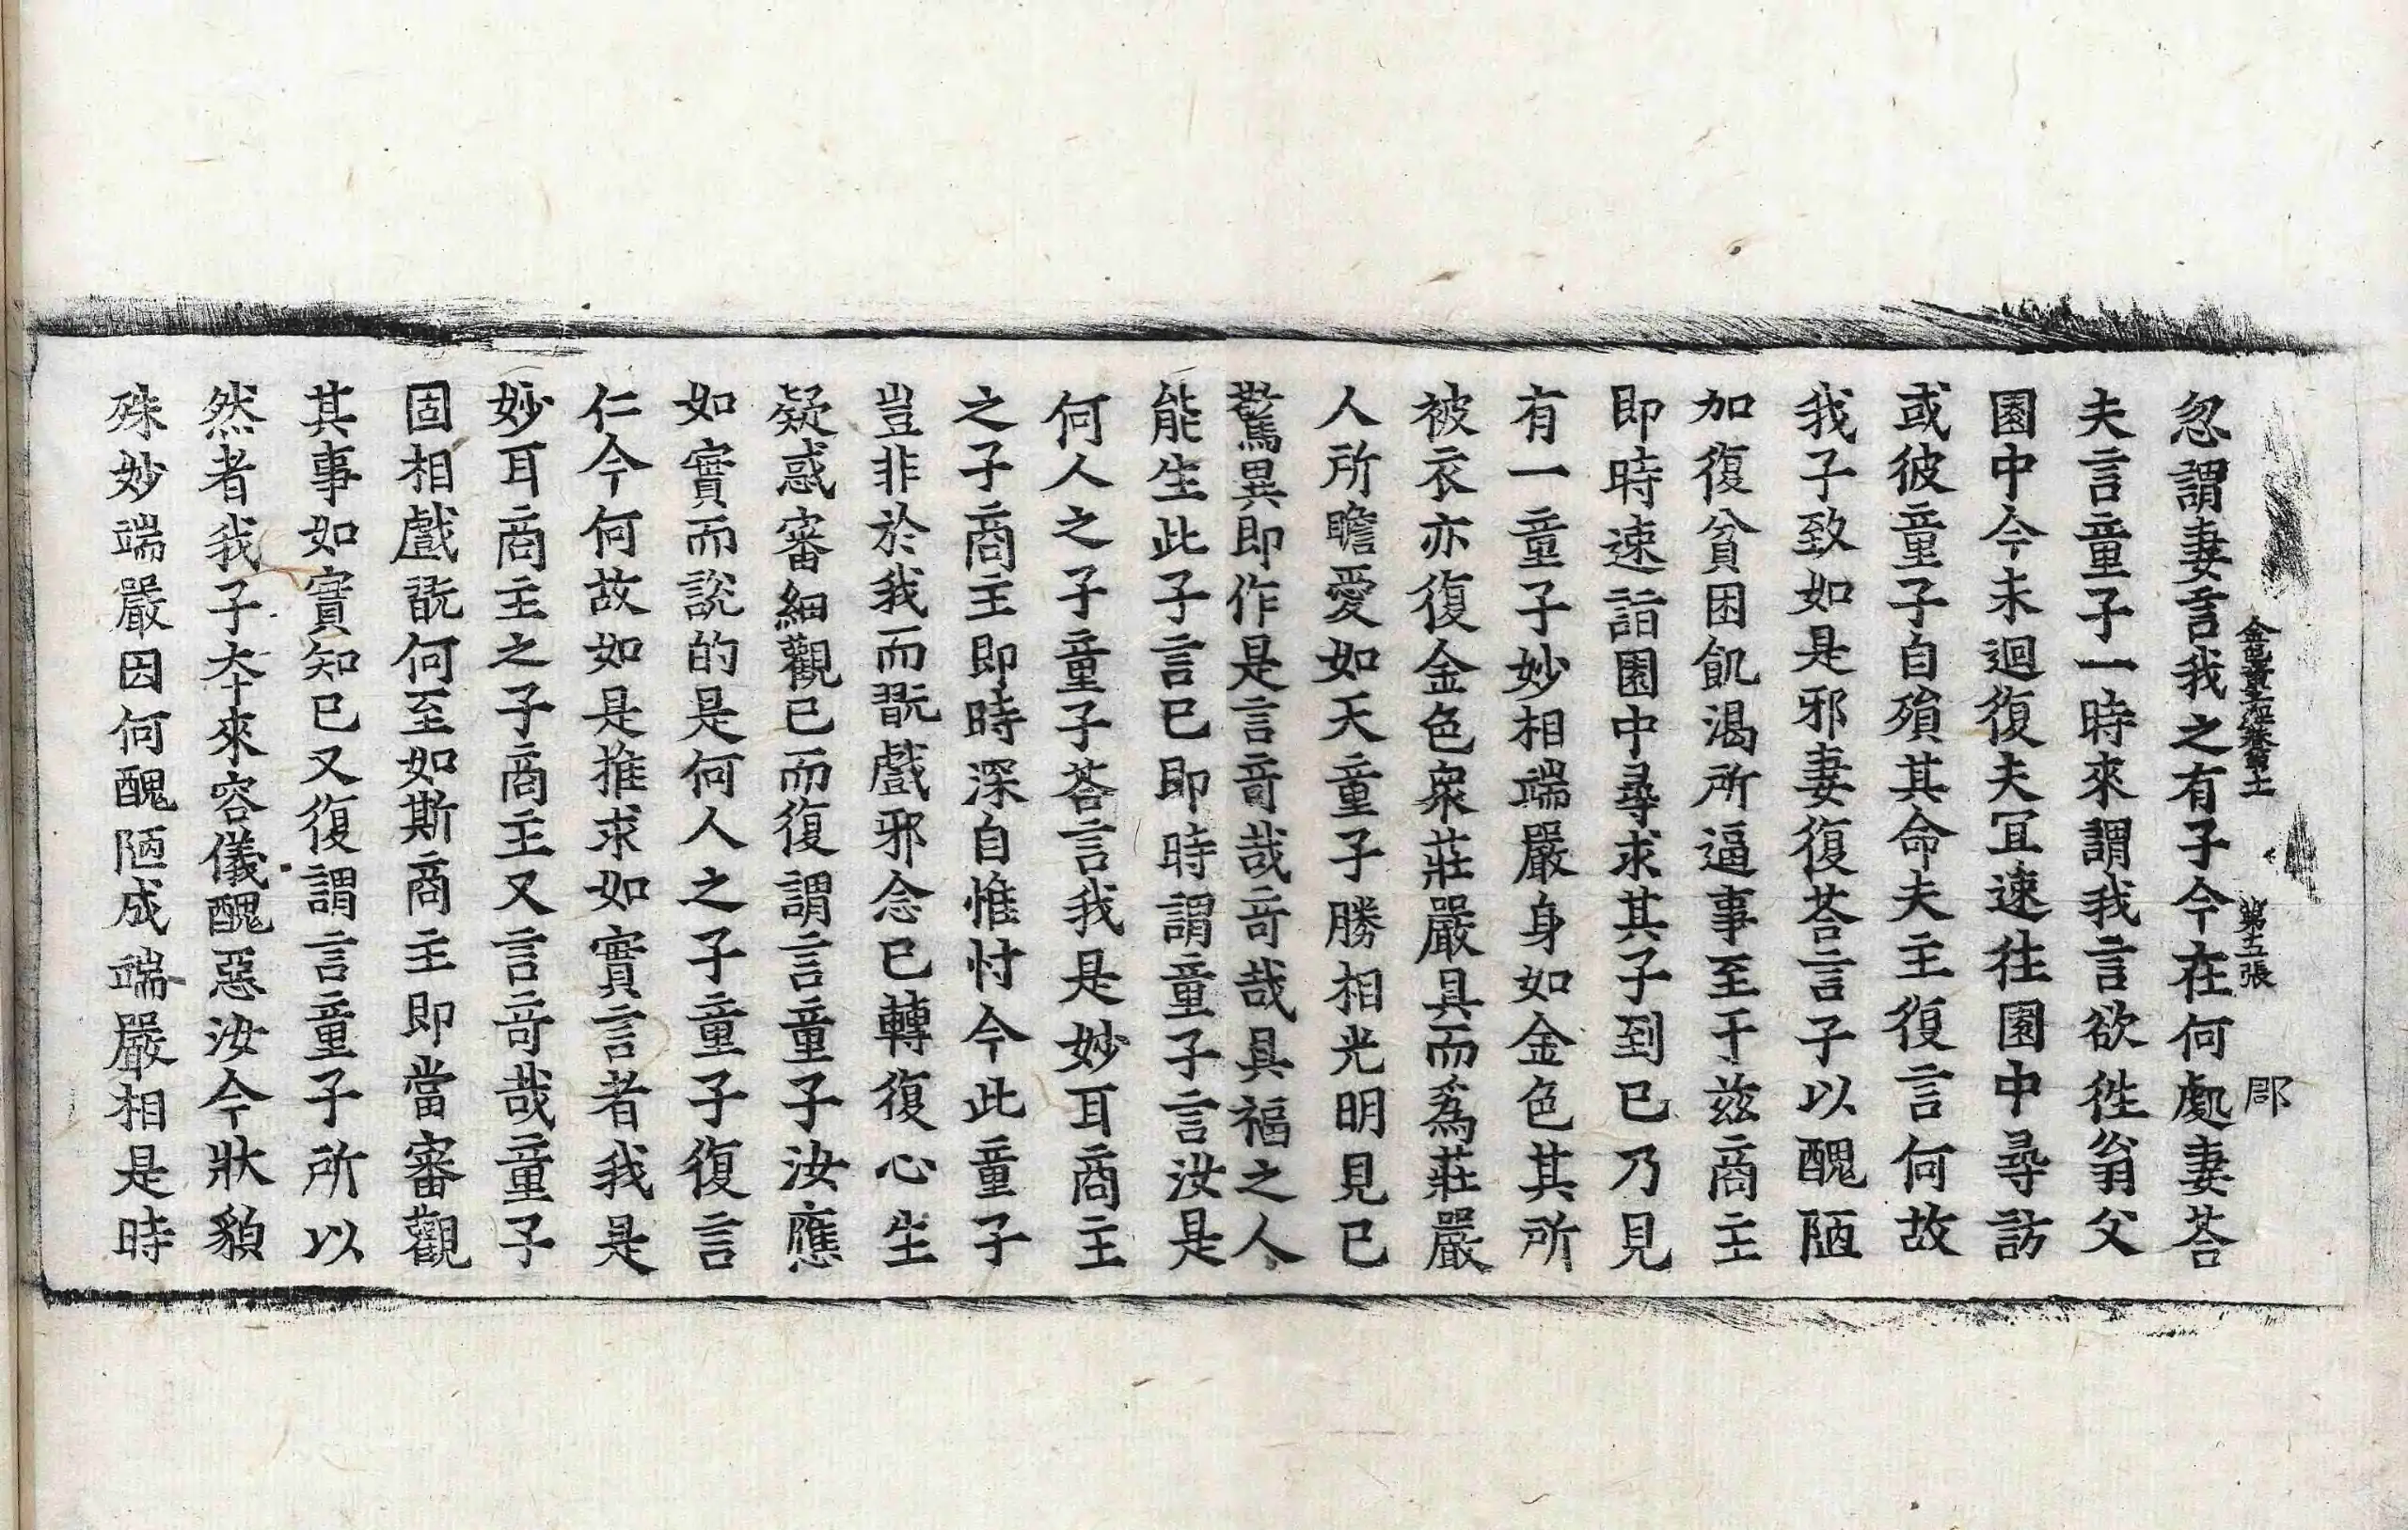 金色童子因緣經卷第十 第五張 郡
忽謂妻言我之有子今在何處妻荅
夫言童子一時來謂我言欲徃翁父
園中今未迴復夫冝速往園中尋訪
或彼童子自殞其命夫主復言何故
我子致如是邪妻復荅言子以醜陋
加復貧困飢渴所逼事至于兹商主
即時速詣園中尋求其子到已乃見
有一童子妙相端嚴身如金色其所
被衣亦復金色衆莊嚴具而爲莊嚴
人所瞻愛如天童子勝相光明見已
驚異即作是言竒哉竒哉具福之人
能生此子言已即時謂童子言汝是
何人之子童子荅言我是妙耳商主
之子商主即時深自惟忖今此童子
豈非於我而翫戲邪念已轉復心生
疑惑審細觀已而復謂言童子汝應
如實而說的是何人之子童子復言
仁今何故如是推求如實言者我是
妙耳商主之子商主又言竒哉童子
固相戲翫何至如斯商主即當審觀
其事如實知已又復謂言童子所以
然者我子夲來容儀醜惡汝今狀貌
殊妙端嚴因何醜陋成端嚴相是時